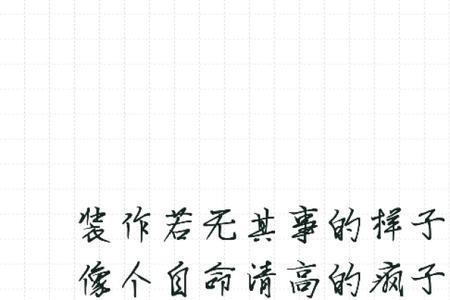 装作若无其事的样子
像个自命清高的疯子